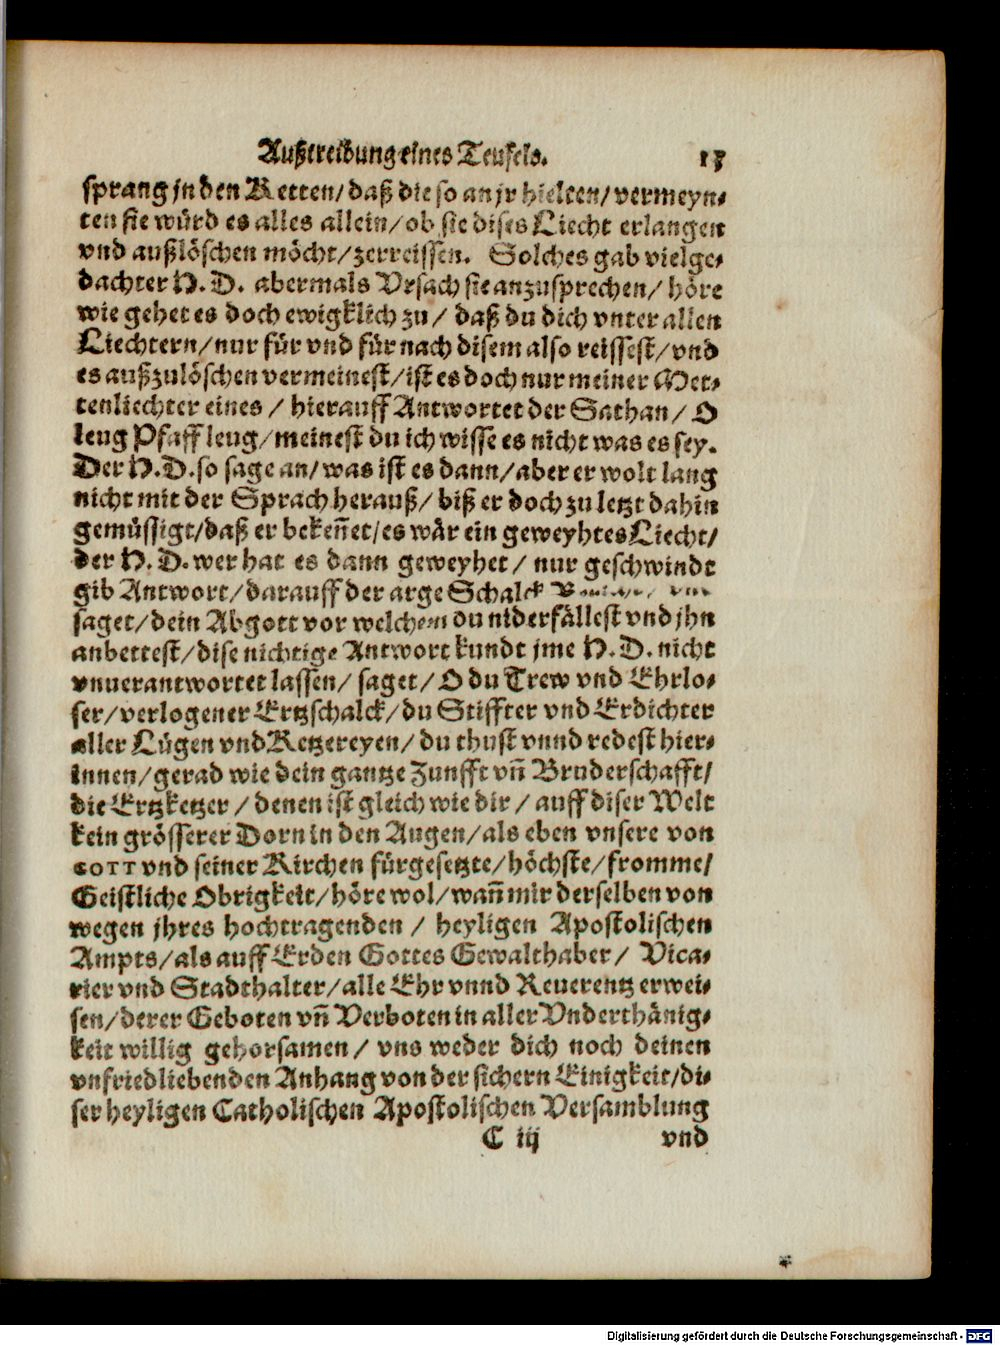 Außtreibung eines Teufels. 13
sprang jn den Ketten/ daß die so an jr hielten/ vermeyn⸗
ten sie würd es alles allein/ ob sie dises Liecht erlangen
vnd außlöschen möcht/ zerreissen. Solches gab vielge⸗
dachter H. D. abermals Vrsach sie anzusprechen/ höre
wie gehet es doch ewigklich zu/ daß du dich vnter allen
Liechtern/ nur für vnd für nach disem also reissest/ vnd
es außzulöschen vermeinest/ ist es doch nur meiner Met⸗
tenliechter eines/ hierauff Antwortet der Sathan/ O
leug Pfaff leug/ meinest du ich wisse es nicht was es sey.
Der H. D. so sage an/ was ist es dann/ aber er wolt lang
nicht mit der Sprach herauß/ biß er doch zu letzt dahin
gemüssigt/ daß er bekeñet/ es wår ein geweyhtes Liecht/
der H. D. wer hat es dann geweyhet/ nur geschwindt
gib Antwort/ darauff der arge Schalck
saget/ dein Abgott vor welchem du niderfällest vnd jhn
anbettest/ dise nichtige Antwort kundt jme H. D. nicht
vnuerantwortet lassen/ saget/ O du Trew vnd Ehrlo⸗
ser/ verlogener Ertzschalck/ du Stiffter vnd Erdichter
aller Lügen vnd Ketzereyen/ du thust vnnd redest hier⸗
innen/ gerad wie dein gantze Zunfft vñ Bruderschafft/
die Ertzketzer/ denen ist gleich wie dir/ auff diser Welt
kein grösserer Dorn in den Augen/ als eben vnsere von
GOTT vnd seiner Kirchen fürgesetzte/ höchste/ fromme/
Geistliche Obrigkeit/ höre wol/ wañ mir derselben von
wegen jhres hochtragenden/ heyligen Apostolischen
Ampts/ als auff Erden Gottes Gewalthaber/ Vica⸗
rier vnd Stadthalter/ alle Ehr vnnd Reuerentz erwei⸗
sen/ derer Geboten vñ Verboten in aller Vnderthänig⸗
keit willig gehorsamen/ vns weder dich noch deinen
vnfriedliebenden Anhang von der sichern Einigkeit/ di⸗
ser heyligen Catholischen Apostolischen Versamblung
C iij vnd
Digitalisierung gefördert durch die Deutsche Forschungsgemeinschaft - DFG